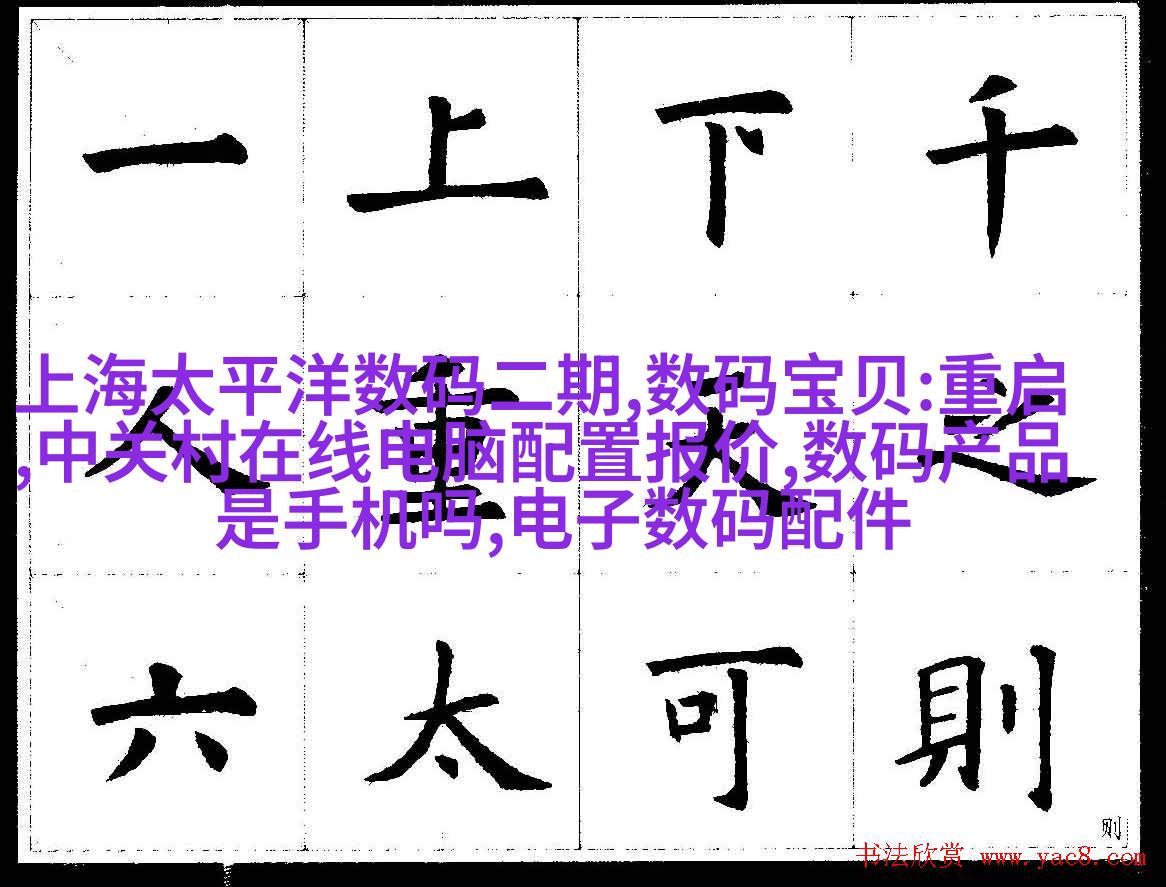 一 上 下 千
上海太平洋数码二期,数码宝贝:重启
,中关村在线电脑配置报价,数码产品
是手机吗,电子数码配件
人 重 天 之
六 太 可 則
则
书法欣赏 www.yac8.com